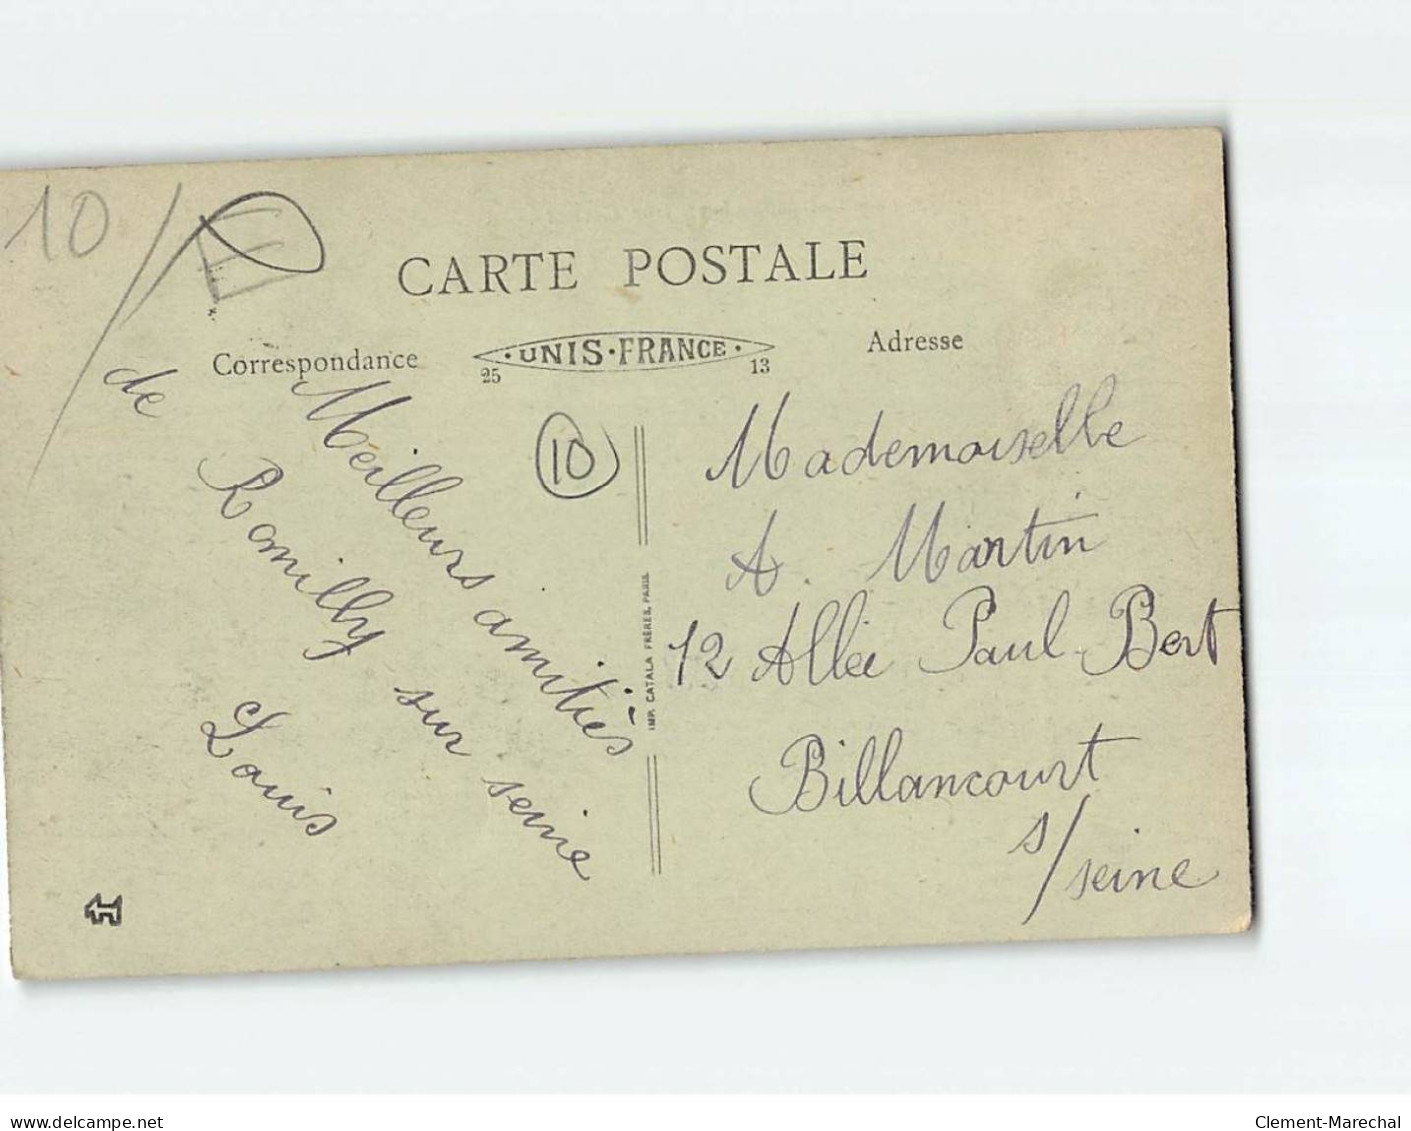 10
CARTE POSTALE
Correspondance
UNIS·FRANCE
25
13
Adresse
10
Meilleurs amitiés
de Romilly sur seine
Louis
IMP. CATALA FRÈRES, PARIS
Mademoiselle
A. Martin
12 Allée Paul Bert
Billancourt
s/seine
delcampe.net
Clement-Marechal